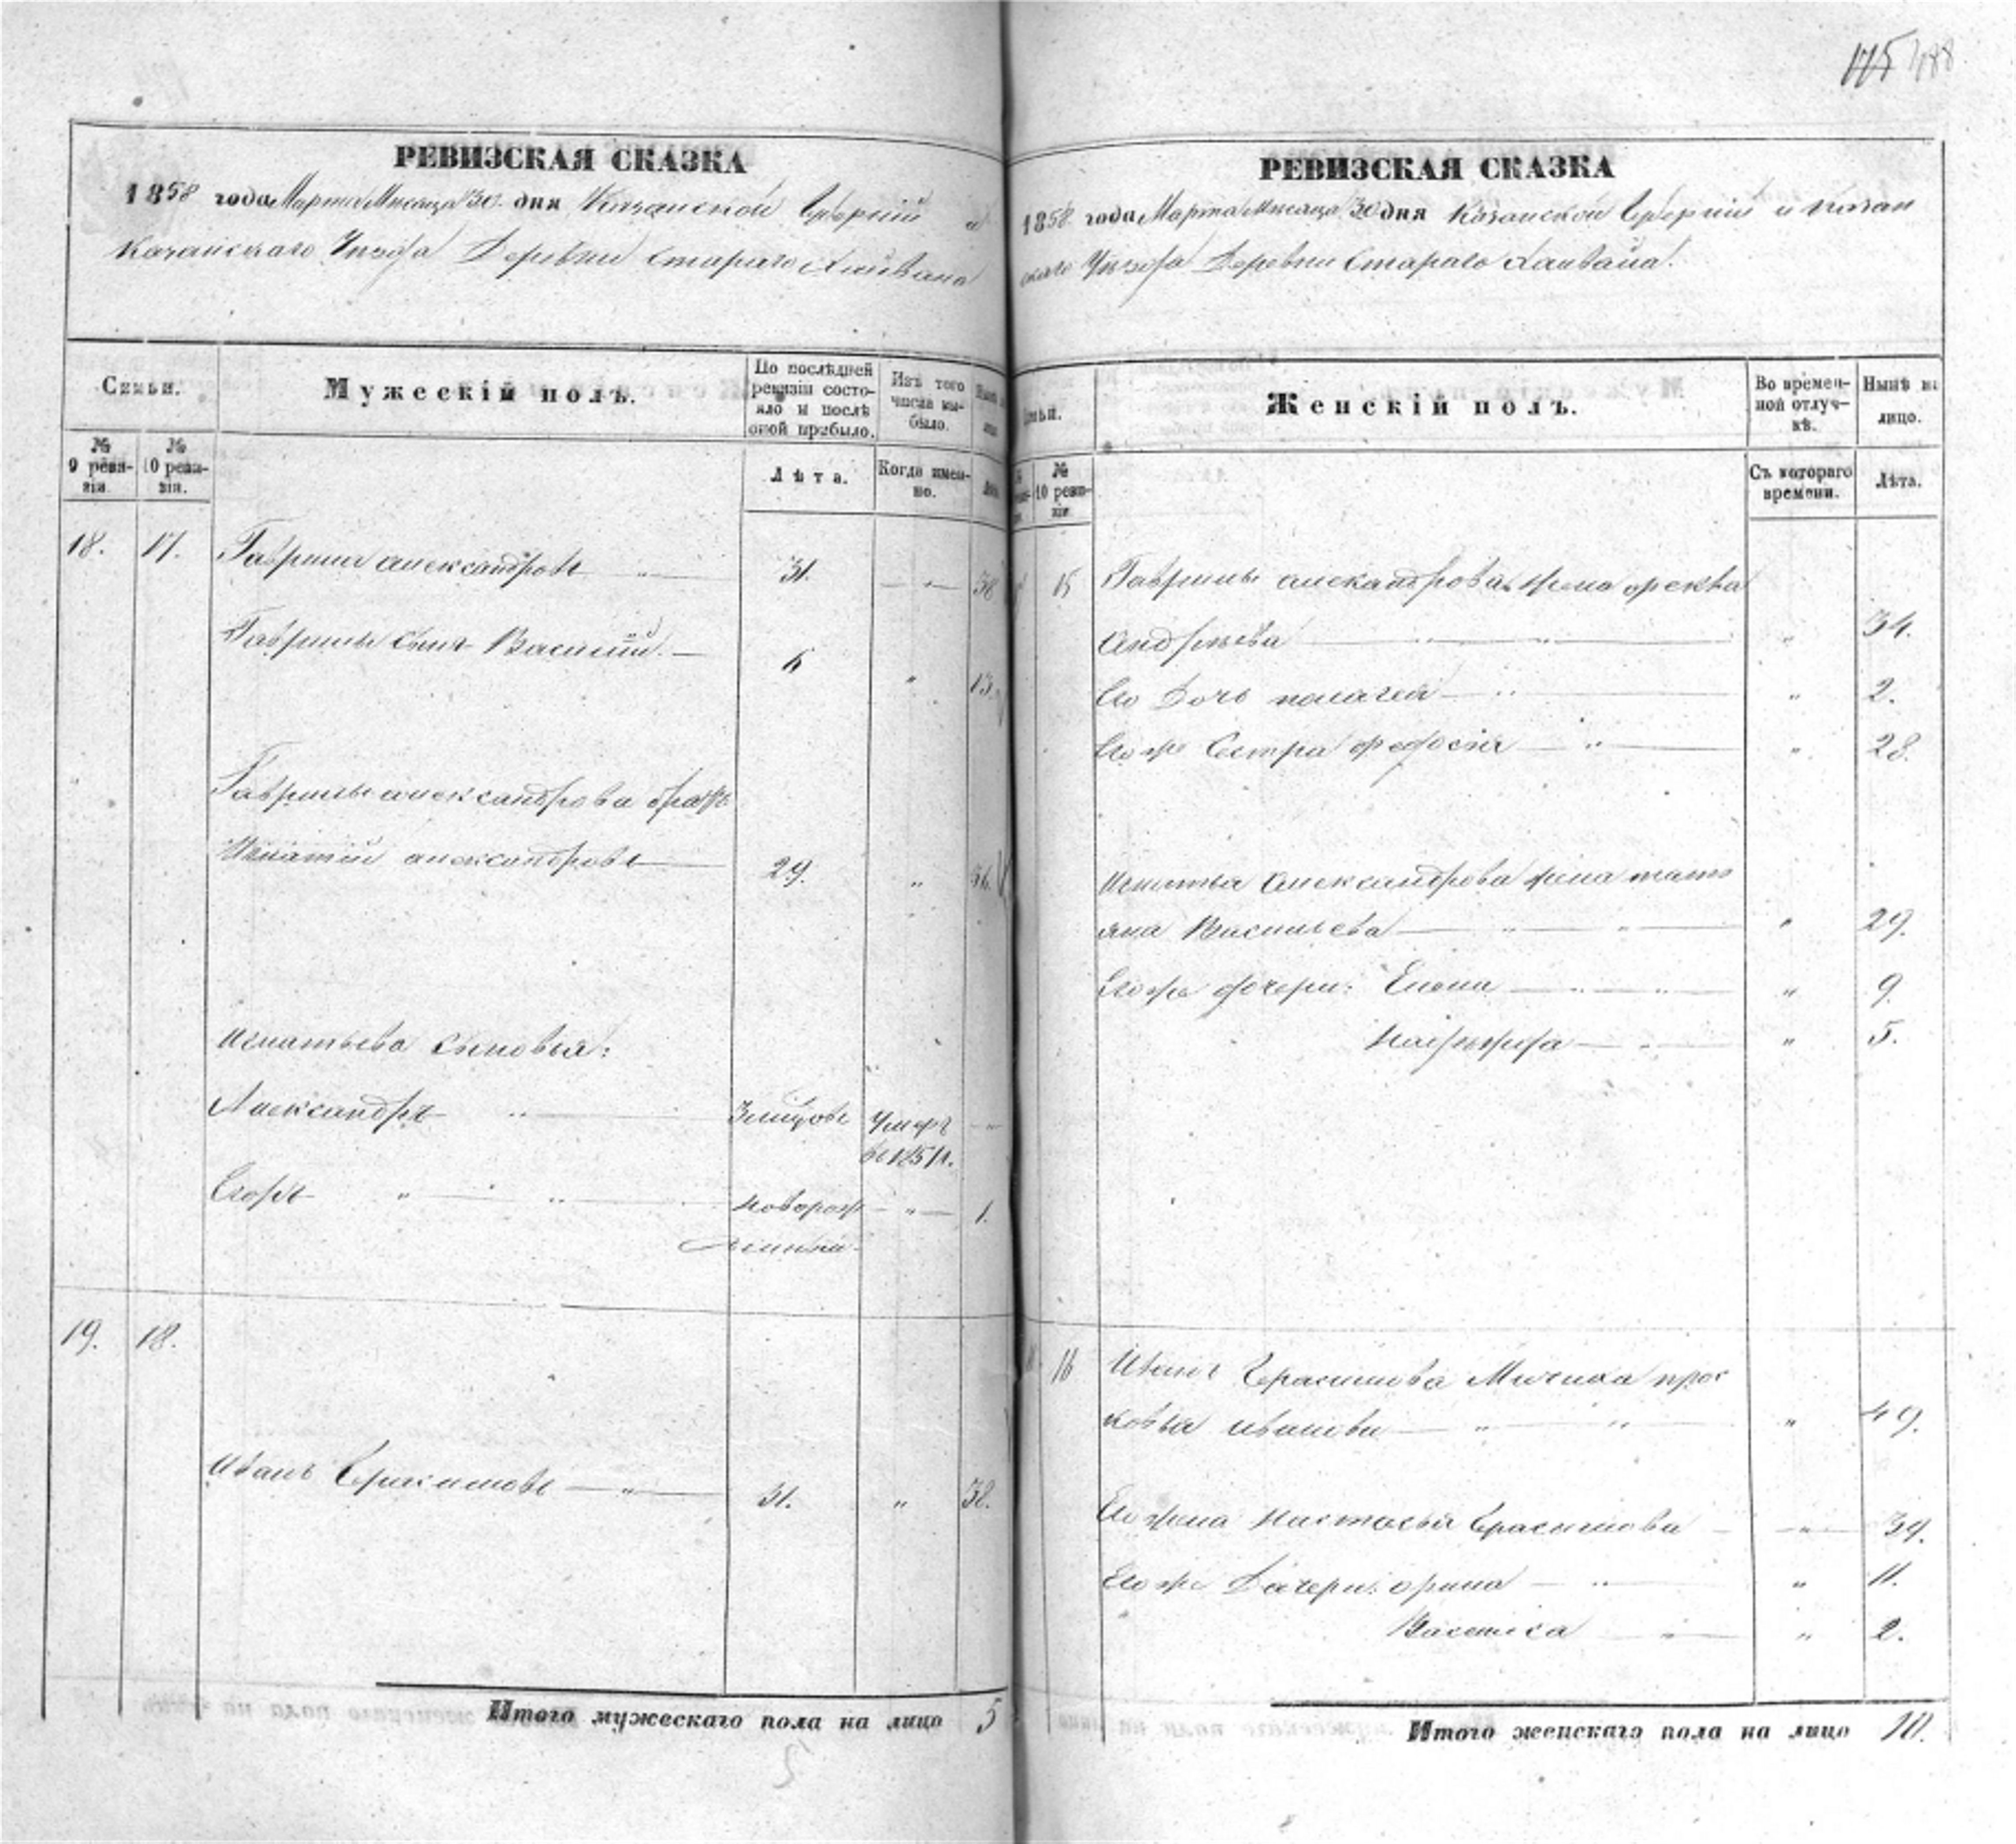 175 488
РЕВИЗСКАЯ СКАЗКА
1858 года Марта Месяца 30 дня Казанской Губернии и
Казанскаго Уезда Деревни Стараго
Семьи.
Мужескій полъ.
По послѣдней ревизіи состояло и послѣ оной прибыло.
Изъ того числа выбыло.
№ 9 ревизіи.
№ 10 ревизіи.
Лѣта.
Когда именно.
18. 17. Гаврила александровъ 31. 38
Гаврилы сынъ Василий 6 13.
Гаврилы александрова братъ
Игнатий александровъ 29. 36.
Игнатьева сыновья:
Александръ Умеръ
въ 185
Егоръ новорож 1.
19. 18.
Иванъ Герасимовъ 31. 38.
Итого мужескаго пола на лицо 5
РЕВИЗСКАЯ СКАЗКА
1858 года Марта Месяца 30 дня Казанской Губернии и Казан
скаго Уезда Деревни Стараго
Женскій полъ.
Во временной отлучкѣ.
Нынѣ на лицо.
№ 10 ревизіи
Съ котораго времени.
Лѣта.
15 Гаврилы александрова жена
Андреева 34.
Его Дочь пелагея 2.
Его же Сестра федосия 28.
Игнатья Александрова жена тать
яна Васильева 29.
Его же дочери: Елена 9.
5.
16 Ивана Герасимова Мачиха прос
ковья иванова 49.
Его жена настасья Герасимова 39.
Его же Дочери: орина 11.
Василиса 2.
Итого женскаго пола на лицо 10.